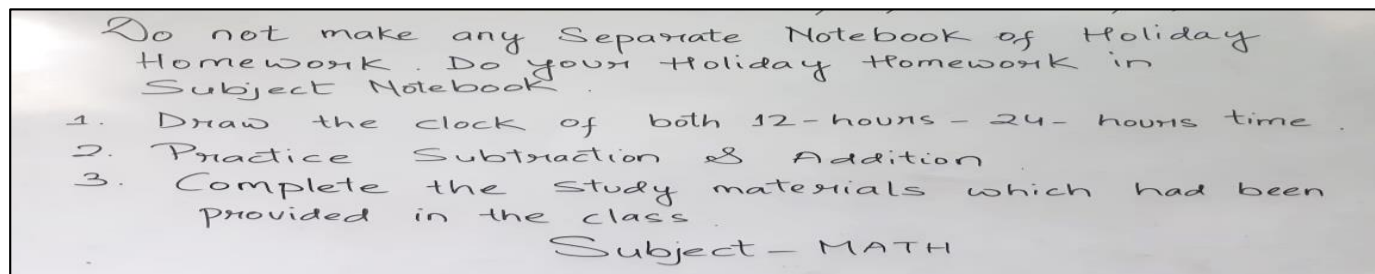 Do not make any Separate Notebook of Holiday
Homework. Do your Holiday Homework in
Subject Notebook.
1. Draw the clock of both 12-hours - 24- hours time.
2. Practice Subtraction & Addition
3. Complete the study materials which had been
provided in the class.
Subject - MATH